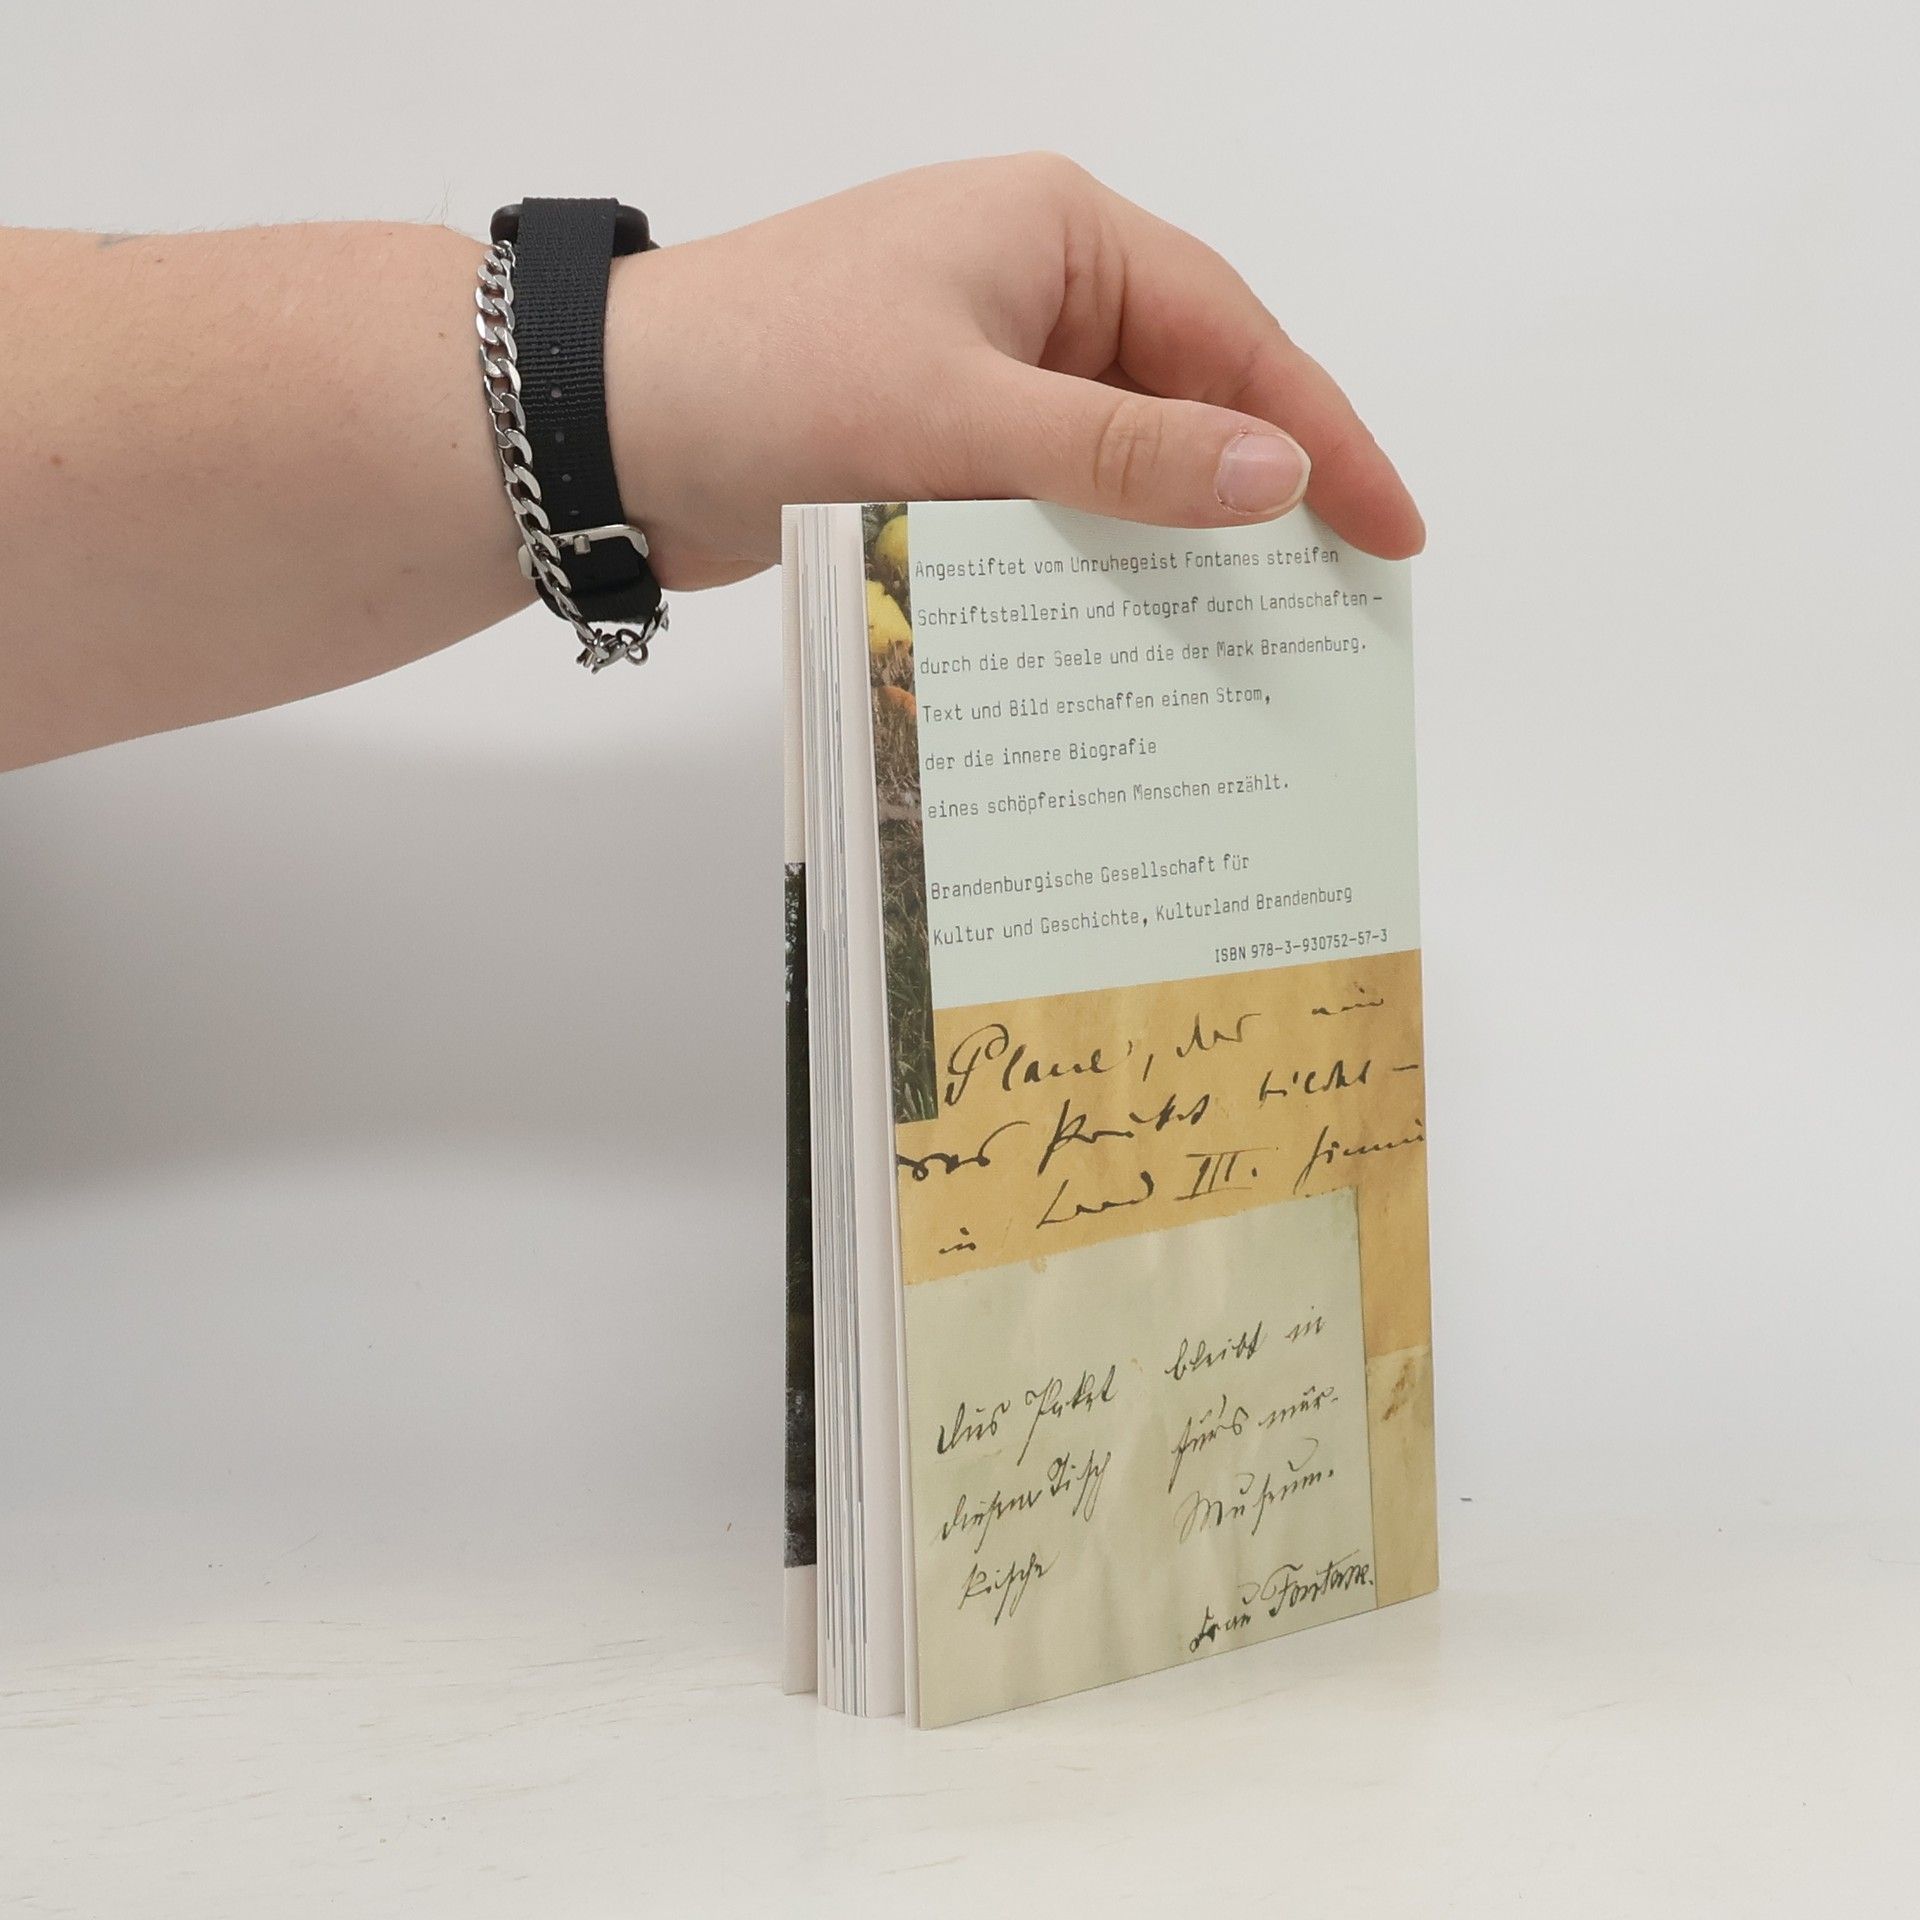 Angestiftet vom Unruhegeist Fontanes streifen
Schriftstellerin und Fotograf durch Landschaften –
durch die der Seele und die der Mark Brandenburg.
Text und Bild erschaffen einen Strom,
der die innere Biografie
eines schöpferischen Menschen erzählt.
Brandenburgische Gesellschaft für
Kultur und Geschichte, Kulturland Brandenburg
ISBN 978-3-930752-57-3
Plaue, der
in Band III.
Das Paket bleibt in
diesem Tisch fürs mär-
kische Museum.
Frau Fontane.